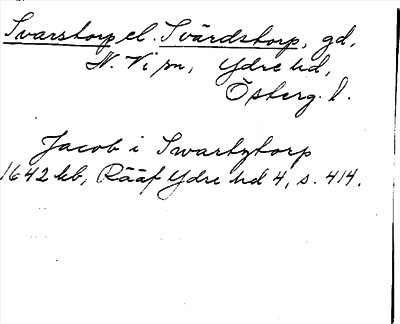 Svarstorp el. Svärdstorp, gd,
N. Vi sn, Ydre hd,
Österg. l.
Jacob i Swartztorp
1642 kb, Rääf Ydre hd 4, s. 414.